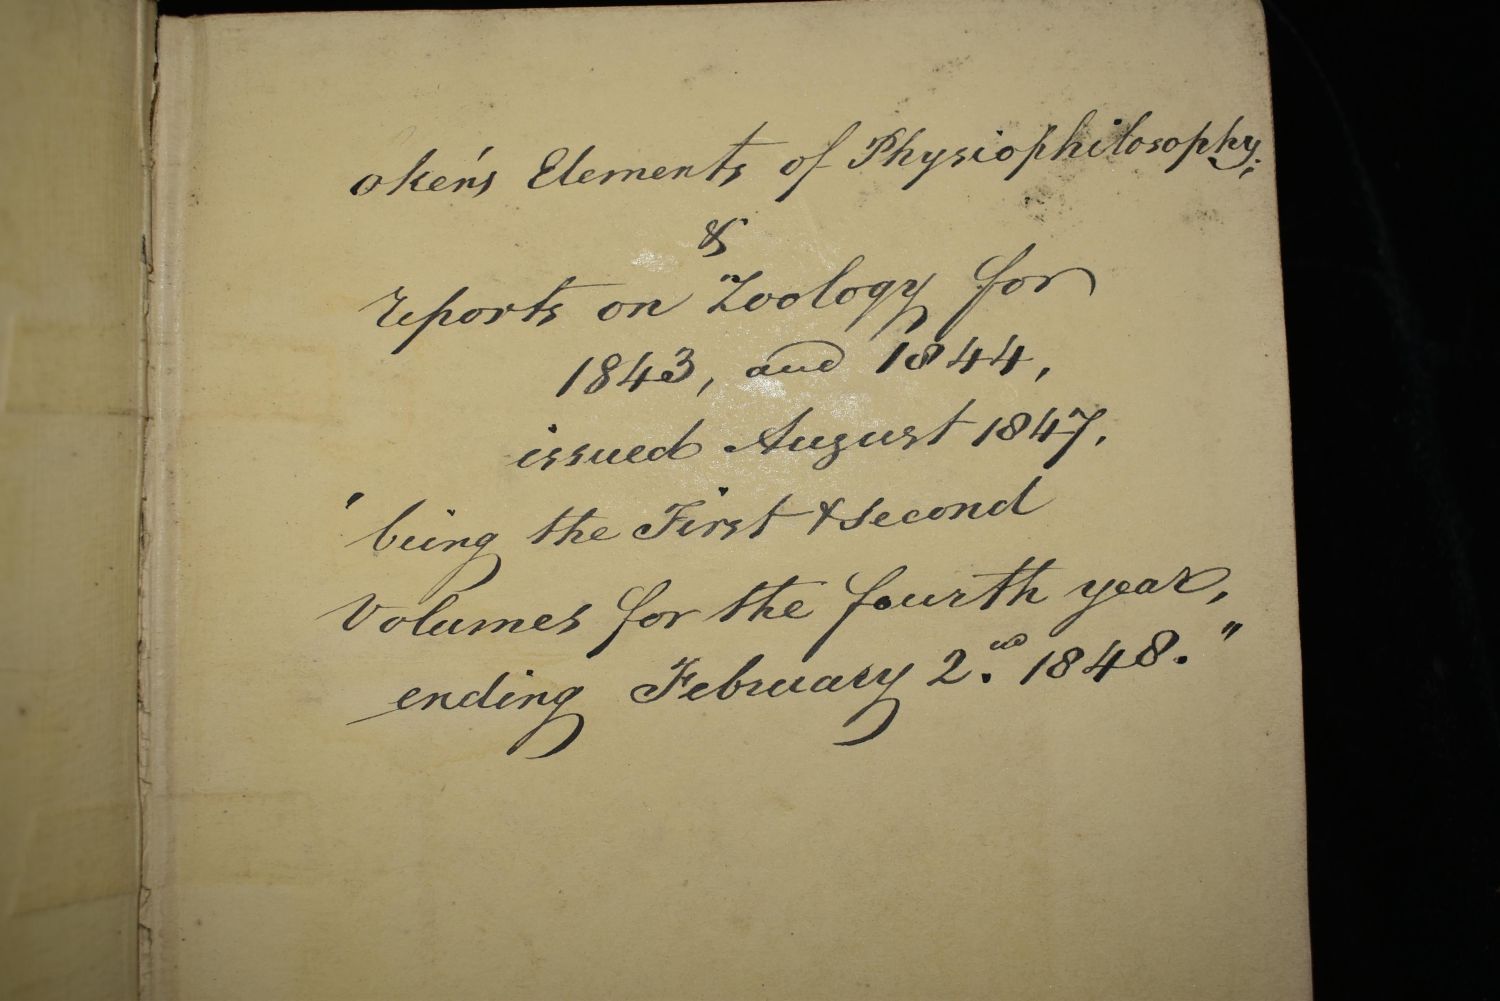 oken's Elements of Physiophilosophy;
&
reports on Zoology for
1843, and 1844,
issued August 1847.
"being the First & second
Volumes for the fourth year,
ending February 2.nd 1848."